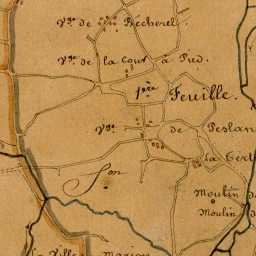 Vge. de Becherel.
Vge. de la Cour a Pied.
1ère Feuille.
Vge. de Peslan
La Tert
Son
Moulin d
Moulin